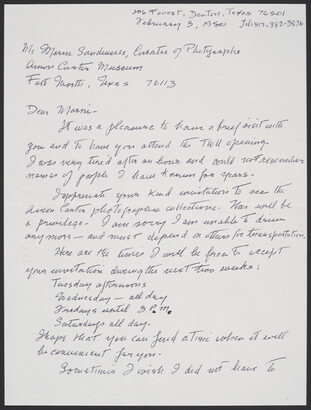 206 Forest, Denton, Texas 76201
February 3, 1980 Tel: 817-382-
Mr. Marni Sandweiss, Curator of Photographs
Amon Carter Museum
Fort Worth, Texas 76113
Dear Marni-
It was a pleasure to have a brief visit with
you and to have you attend the TWU opening.
I was very tired after an hour and could not remember
names of people I have known for years.
I appreciate your kind invitation to see the
Amon Carter photographic collections. This will be
a privilege. I am sorry I am unable to drive
anymore - and must depend on others for transportation.
Here are the times I will be free to accept
your invitation during the next two weeks:
Tuesday afternoons
Wednesday - all day
Fridays until 3 P.M.
Saturdays all day.
I hope that you can find a time when it will
be convenient for you.
Sometimes I wish I did not have to